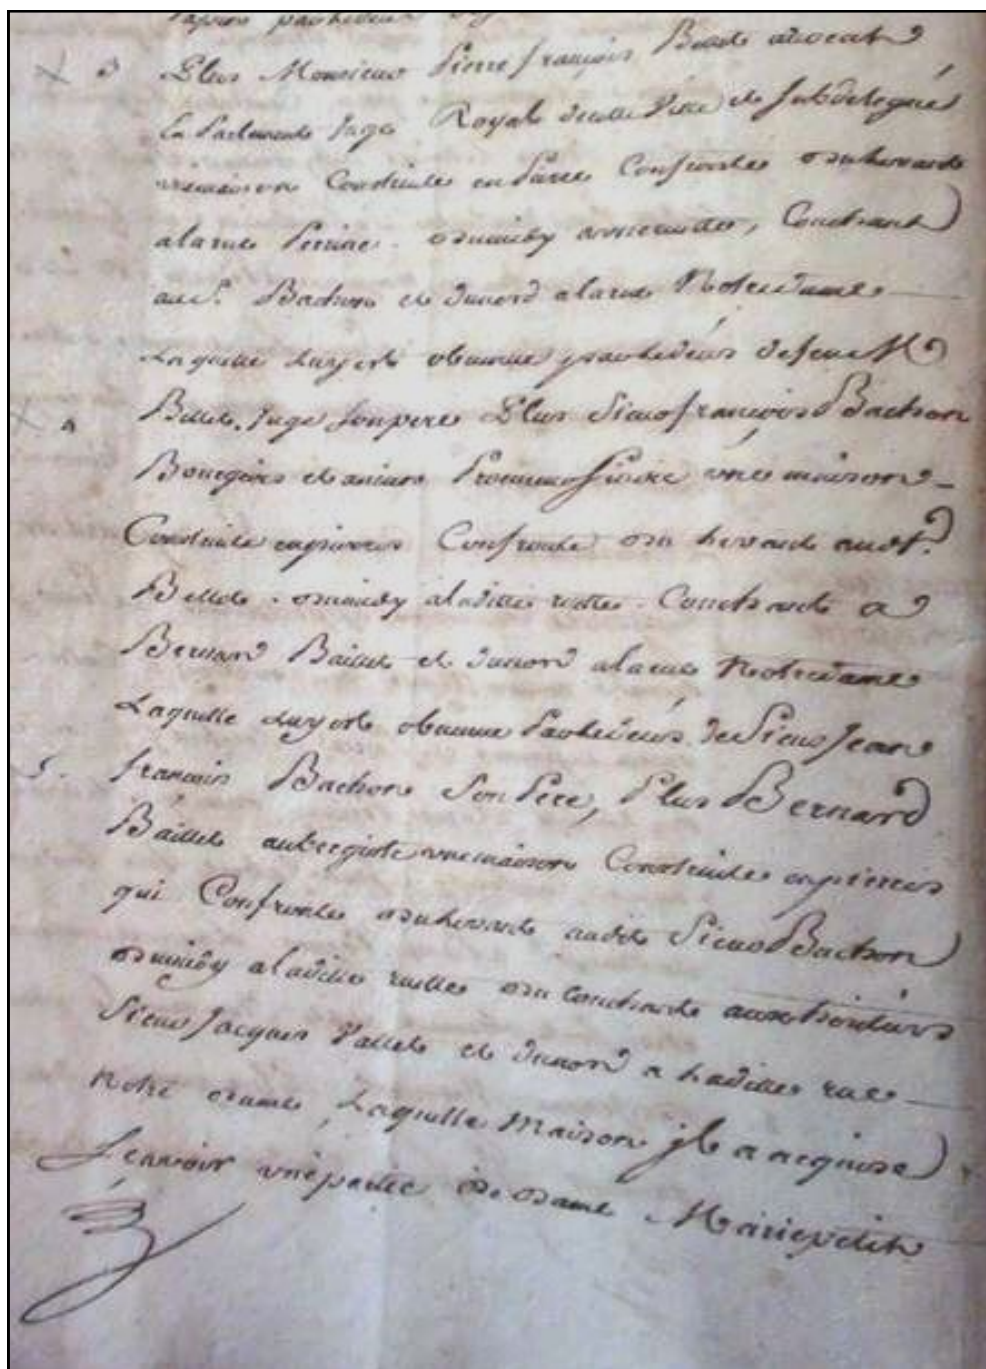 3 Plus Monsieur Pierre françois Bellet advocat
En Parlement Juge Royal de cette Ville et subdelegué
une maison Construite en Pierre Confronte du levant
a la rue du midy a une ruette, Couchant
au Sr. Bachon et du nord a la rue Notre dame
Laquelle luy est obvenue par le deces de feu M
Bellet Juge son pere Plus Sieur françois Bachon
4
Bourgeois et ancien Procureur une maison
Construite en pierres Confronte du levant audt.
Bellet du midy a laditte ruette Couchant a
Bernard Baillet et du nord a la rue Notre dame
Laquelle luy est obvenue Par le deces de Sieur Jean
5. françois Bachon Son Pere, Plus Bernard
Baillet aubergiste une maison Construite en pierres
qui Confronte du levant audit Sieur Bachon
du midy a laditte ruette du Couchant aux heritiers
Sieur Jacques Vallet et du nord a laditte rue
Notre dame, Laquelle Maison jl a acquise
Scavoir une partie de dame Marie petit